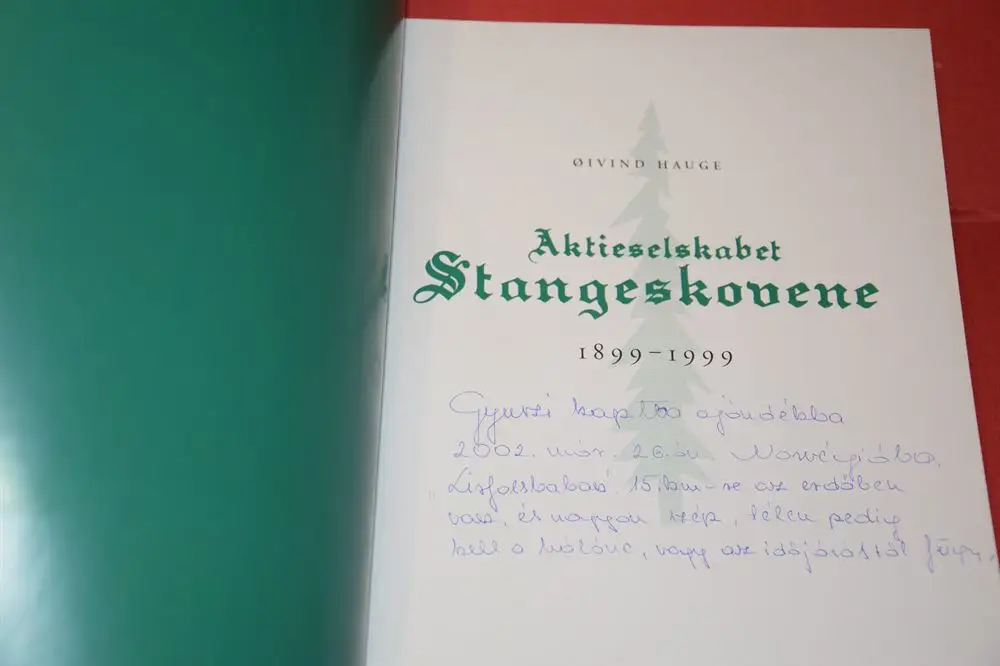 ØIVIND HAUGE
Aktieselskabet
Stangeskovene
1899–1999
Gyuszi kapta ajándékba
2002. már. 26.án Norvégiába.
15.km-re az erdőben
van, és nagyon szép, télen pedig
kell a hólánc, vagy az időjárástól függ.